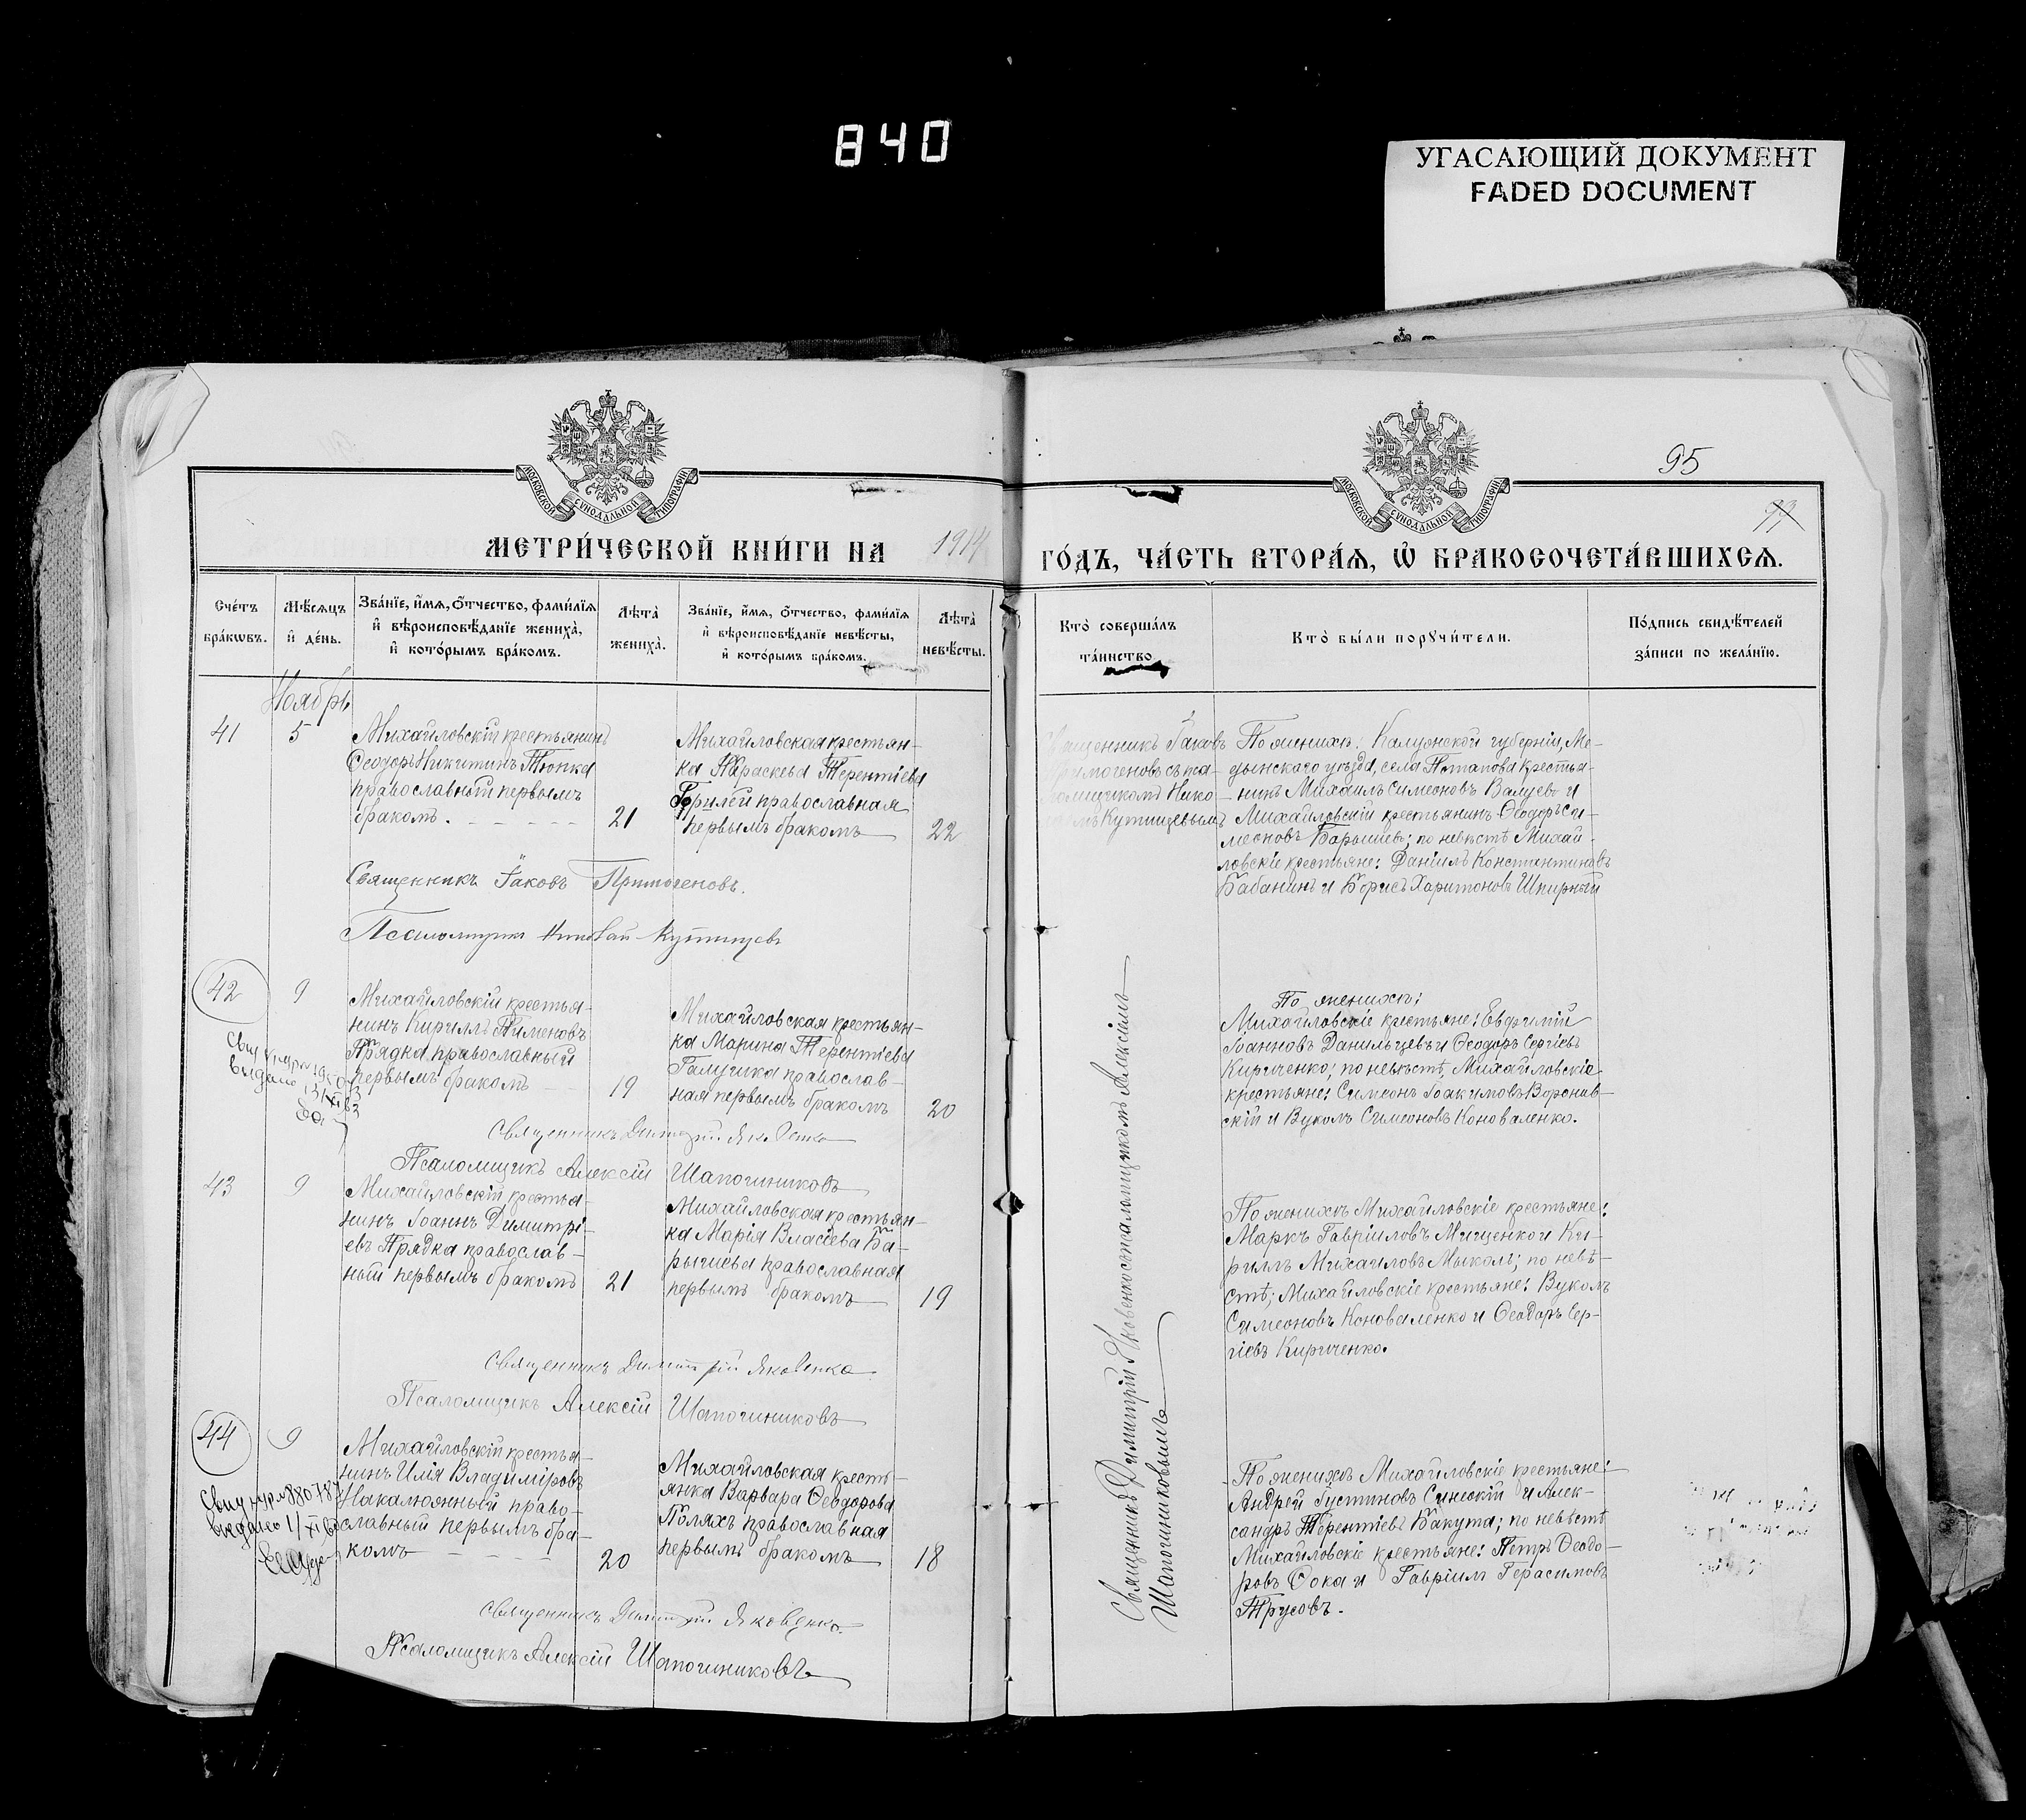 840
УГАСАЮЩИЙ ДОКУМЕНТ
FADED DOCUMENT
МОСКОВСКОЙ СУНОДАЛЬНОЙ ТИПОГРАФІИ
МОСКОВСКОЙ СУНОДАЛЬНОЙ ТИПОГРАФІИ
95
МЕТРИ́ЧЕСКОЙ КНИ́ГИ НА 1914 ГО́ДЪ, ЧА́СТЬ ВТОРА́Я, Ѡ҆ БРАКОСОЧЕТА́ВШИХСЯ.
Сче́тъ бра́кѡвъ.
Мѣ́сяцъ и҆ де́нь.
Зва́нїе, и҆́мя, ѻ҆́тчество, фами́лїя и҆ вѣроисповѣ́данїе жениха̀, и҆ кото́рымъ бра́комъ.
Лѣта̀ жениха̀.
Зва́нїе, и҆́мя, ѻ҆́тчество, фами́лїя и҆ вѣроисповѣ́данїе невѣ́сты, и҆ кото́рымъ бра́комъ.
Лѣта̀ невѣ́сты.
Кто̀ соверша́лъ та́инство
Кто̀ бы́ли порꙋчи́тели.
По́дпись свидѣ́телей за́писи по жела́нїю.
Ноябрь
41
5
Михайловскій крестьянинъ
Ѳеодоръ Никитинъ Тюпка
православный первымъ
бракомъ.
21
Михайловская крестьян-
ка Параскева Терентіева
православная
первымъ бракомъ
22
Священникъ Іаковъ
Примогеновъ съ пса-
ломщикомъ Нико-
Кутинцевымъ
По женихѣ: Калужской губерніи, Ме-
дынскаго уѣзда, села Потапова крестья-
нинъ Михаилъ Симеоновъ Валуевъ и
Михайловскій крестьянинъ Ѳеодоръ Си-
меоновъ Барышевъ; по невѣстѣ Михай-
ловскіе крестьяне: Даніилъ Константиновъ
Бабанинъ и Борисъ Харитоновъ Шпирный
Священникъ Іаковъ Примогеновъ.
Псаломщикъ Николай Кутинцевъ
42
9
Михайловскій крестья-
нинъ Кириллъ Пименовъ
Прядка православный
первымъ бракомъ
19
Михайловская крестьян-
ка Марина Терентіева
Галушка православ-
ная первымъ бракомъ
20
По женихѣ:
Михайловскіе крестьяне: Евфимій
Іоанновъ Данильцевъ и Ѳеодоръ Сергіевъ
Кириченко; по невѣстѣ, Михайловскіе
крестьяне: Симеонъ Іоакимовъ Воронов-
скій и Вуколъ Симеоновъ Коноваленко.
выдано
Священникъ Димитрій Яковенко
Псаломщикъ Алексій Шапошниковъ
43
9
Михайловскій крестья-
нинъ Іоаннъ Димитрі-
евъ Прядка православ-
ный первымъ бракомъ
21
Михайловская крестьян-
ка Марія Власіева Ба-
рышева православная
первымъ бракомъ
19
По женихѣ Михайловскіе крестьяне:
Маркъ Гавріиловъ Мищенко и Ки-
риллъ Михаиловъ Мыколъ; по невѣ-
стѣ; Михайловскіе крестьяне: Вуколъ
Симеоновъ Коноваленко и Ѳеодоръ Сер-
гіевъ Кириченко.
Священникъ Димитрій Яковенко
Псаломщикъ Алексій Шапошниковъ
44
9
Михайловскій крестья-
нинъ Илія Владиміровъ
Накалюжный право-
славный первымъ бра-
комъ
20
Михайловская кресть-
янка Варвара Ѳеодорова
Поляхъ православная
первымъ бракомъ
18
По женихѣ Михайловскіе крестьяне:
Андрей Іустиновъ Синескій и Алек-
сандръ Терентіевъ Бакута; по невѣстѣ
Михайловскіе крестьяне: Петръ Ѳеодо-
ровъ Сока и Гавріилъ Герасимовъ
Трусовъ.
выдано
Священникъ Димитрій Яковенко.
Псаломщикъ Алексій Шапошниковъ
Священникъ Димитрій Яковенко съ псаломщикомъ Алексіемъ
Шапошниковымъ